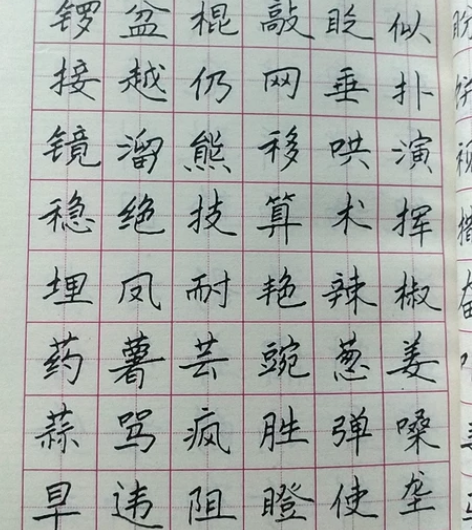 锣盆棍敲眨似
接越仍网垂扑
镜溜熊移哄演
稳绝技算术挥
埋凤耐艳辣椒
药薯芸豌葱姜
蒜骂疯胜弹嗓
早违阻瞪使垄